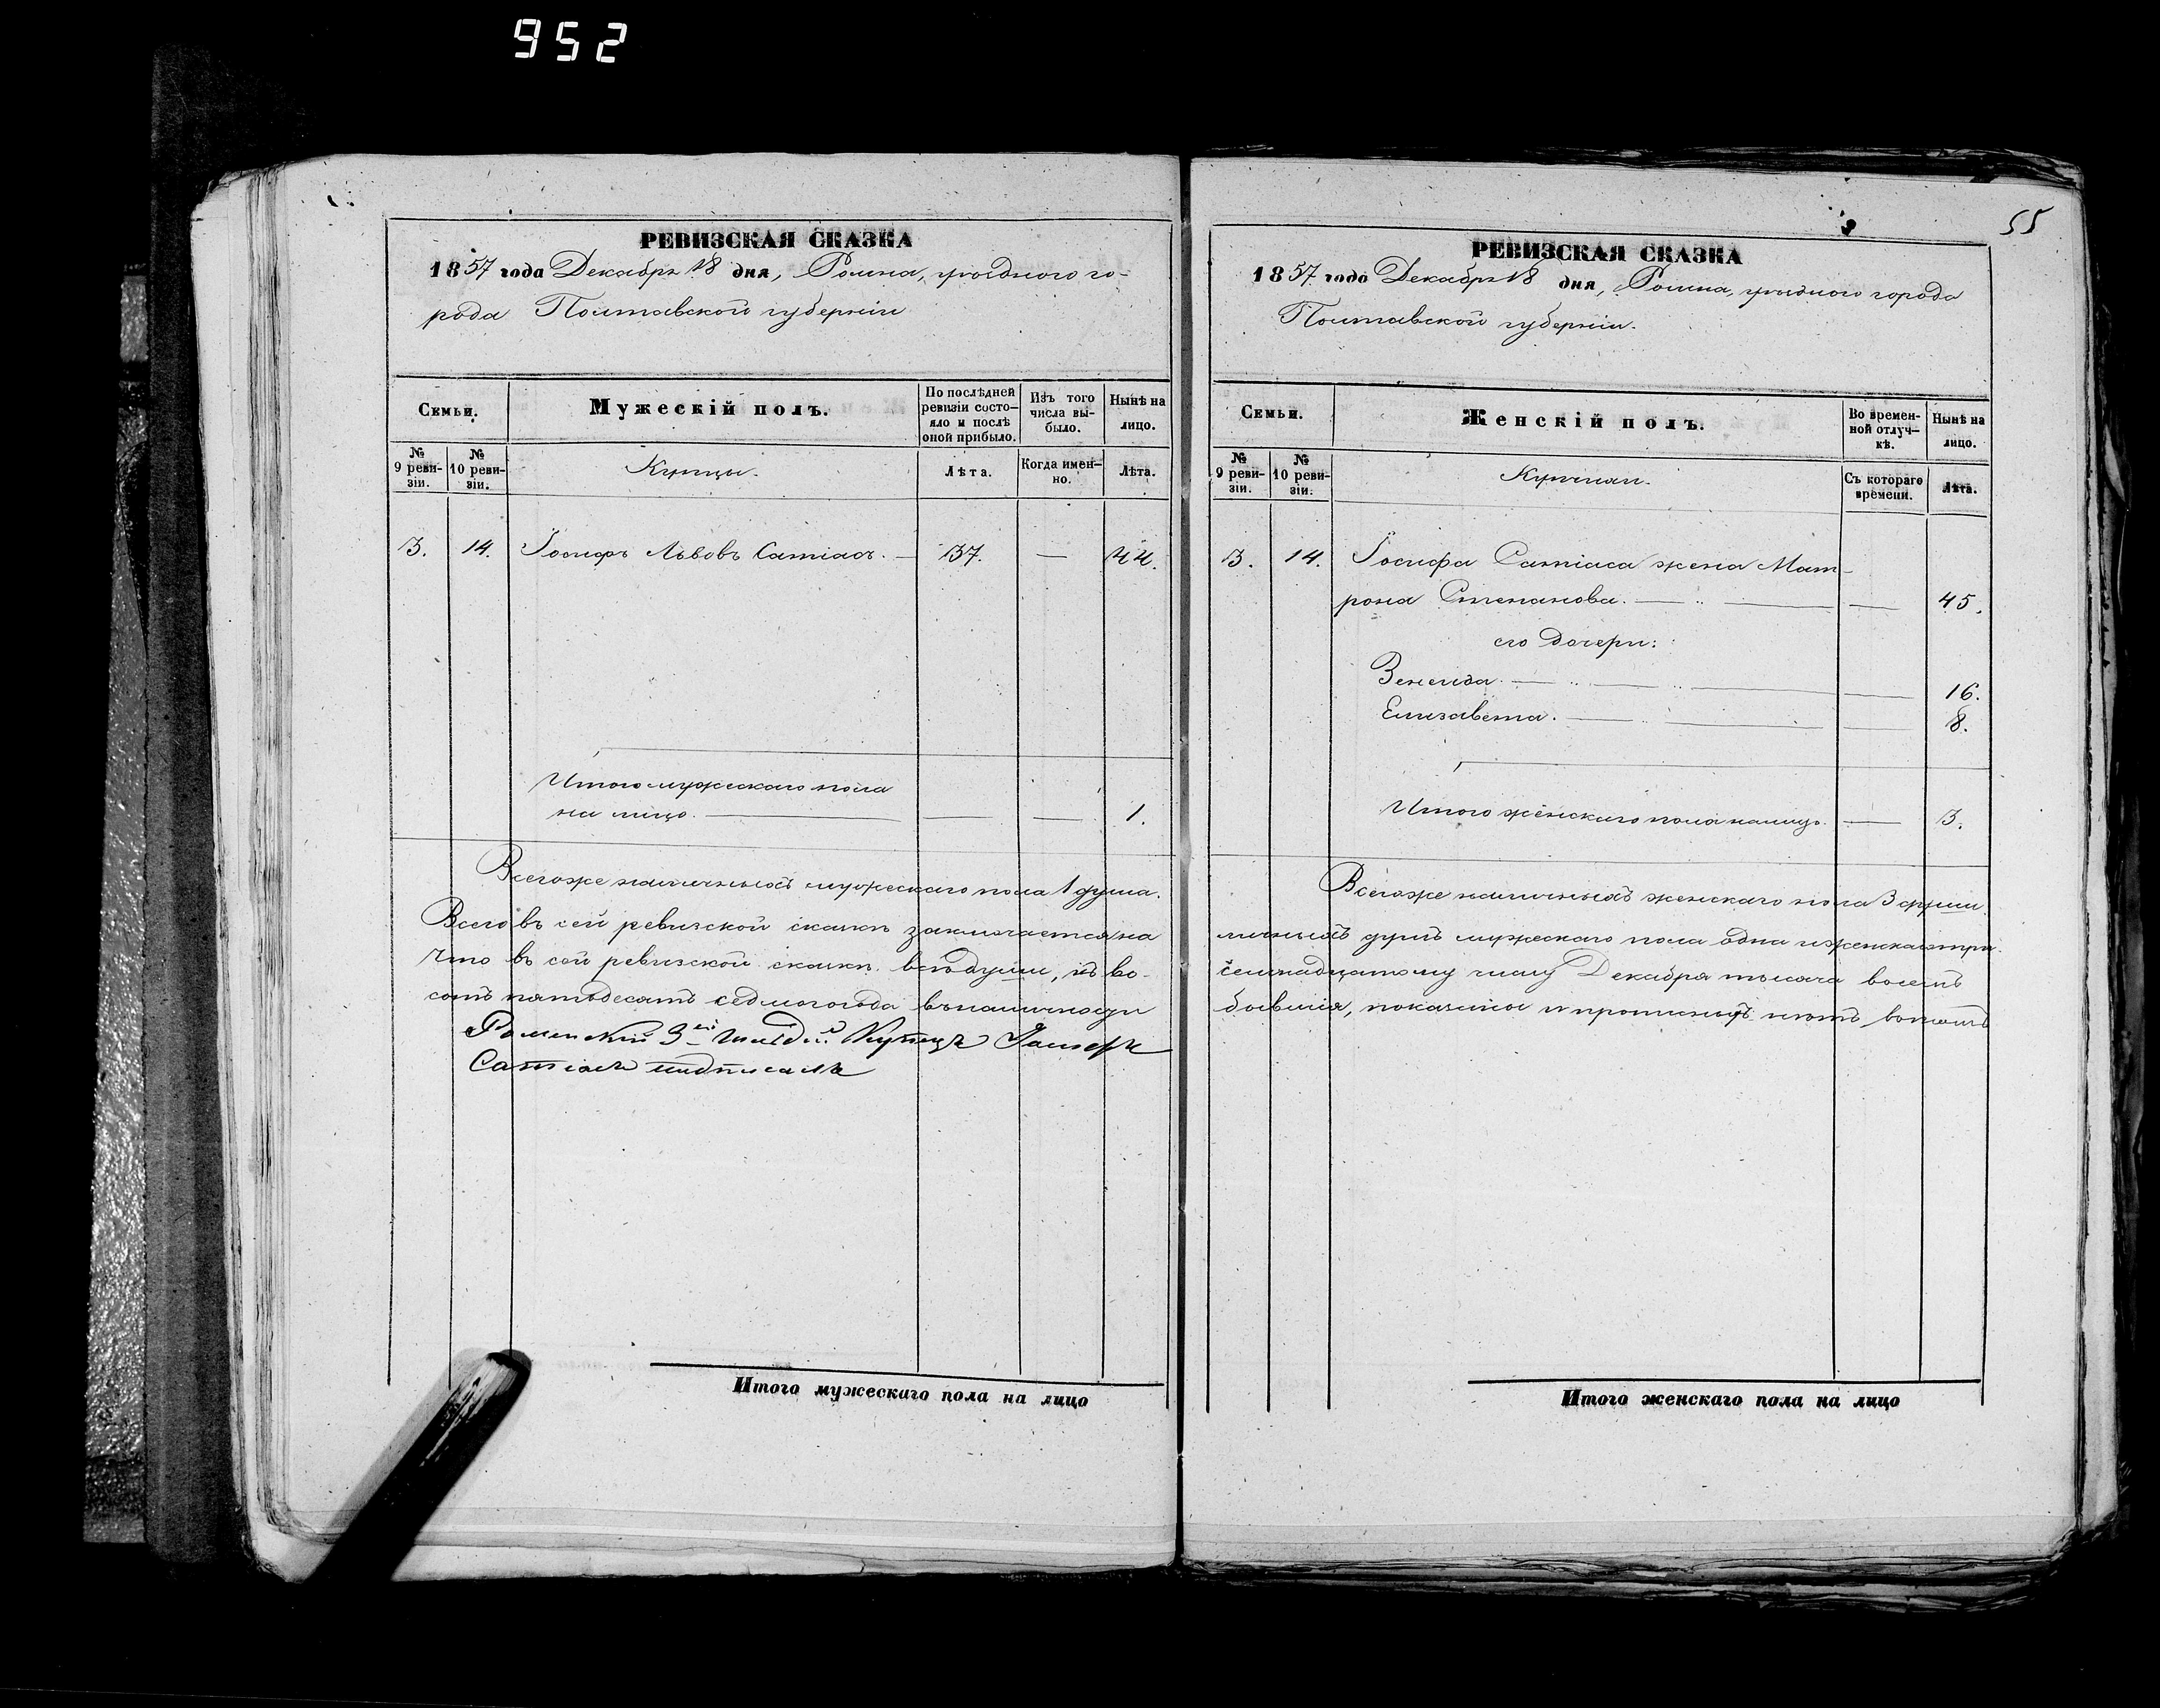 952
РЕВИЗСКАЯ СКАЗКА
1857 года Декабря 18 дня, Ромна, уѣзднаго го-
рода Полтавской губерніи
Семьи.
Мужескій полъ.
По послѣдней ревизіи состо-
яло и послѣ оной прибыло.
Изъ того числа вы-
было.
Нынѣ на лицо.
№ 9 реви-
зіи.
№ 10 реви-
зіи.
Купцы.
Лѣта.
Когда имен-
но.
Лѣта.
3. 14. Іосифъ Львовъ Сатіасъ. — 37. — 44.
Итого мужескаго пола
на лицо. — — — 1.
Всегоже наличныхъ мужескаго пола 1 душа.
Всего въ сей ревизской сказкѣ заключается на
Что въ сей ревизской сказкѣ всѣ души, къ во-
сотъ пятьдесятъ седмого года въ наличности
Роменскій 3ей гильдіи Купецъ Іосифъ
Сатіасъ подписалъ
Итого мужескаго пола на лицо
55
РЕВИЗСКАЯ СКАЗКА
1857 года Декабря 18 дня, Ромна, уѣзднаго города
Полтавской губерніи.
Семьи.
Женскій полъ.
Во времен-
ной отлуч-
кѣ.
Нынѣ на лицо.
№ 9 реви-
зіи.
№ 10 реви-
зіи.
Купчихи.
Съ котораго времени.
Лѣта.
3. 14. Іосифа Сатіаса жена Мат-
рона Степанова. — — — 45.
его дочери:
Зенеида. — — — — 16.
Елизавета. — — — 8.
Итого женскаго пола налицо. — 3.
Всегоже наличныхъ женскаго пола 3 души.
личныхъ душъ мужескаго пола одна и женска три.
семнадцатому числу Декабря тысяча восемь
бывшія, показаны и прописныхъ нѣтъ въ томъ
Итого женскаго пола на лицо